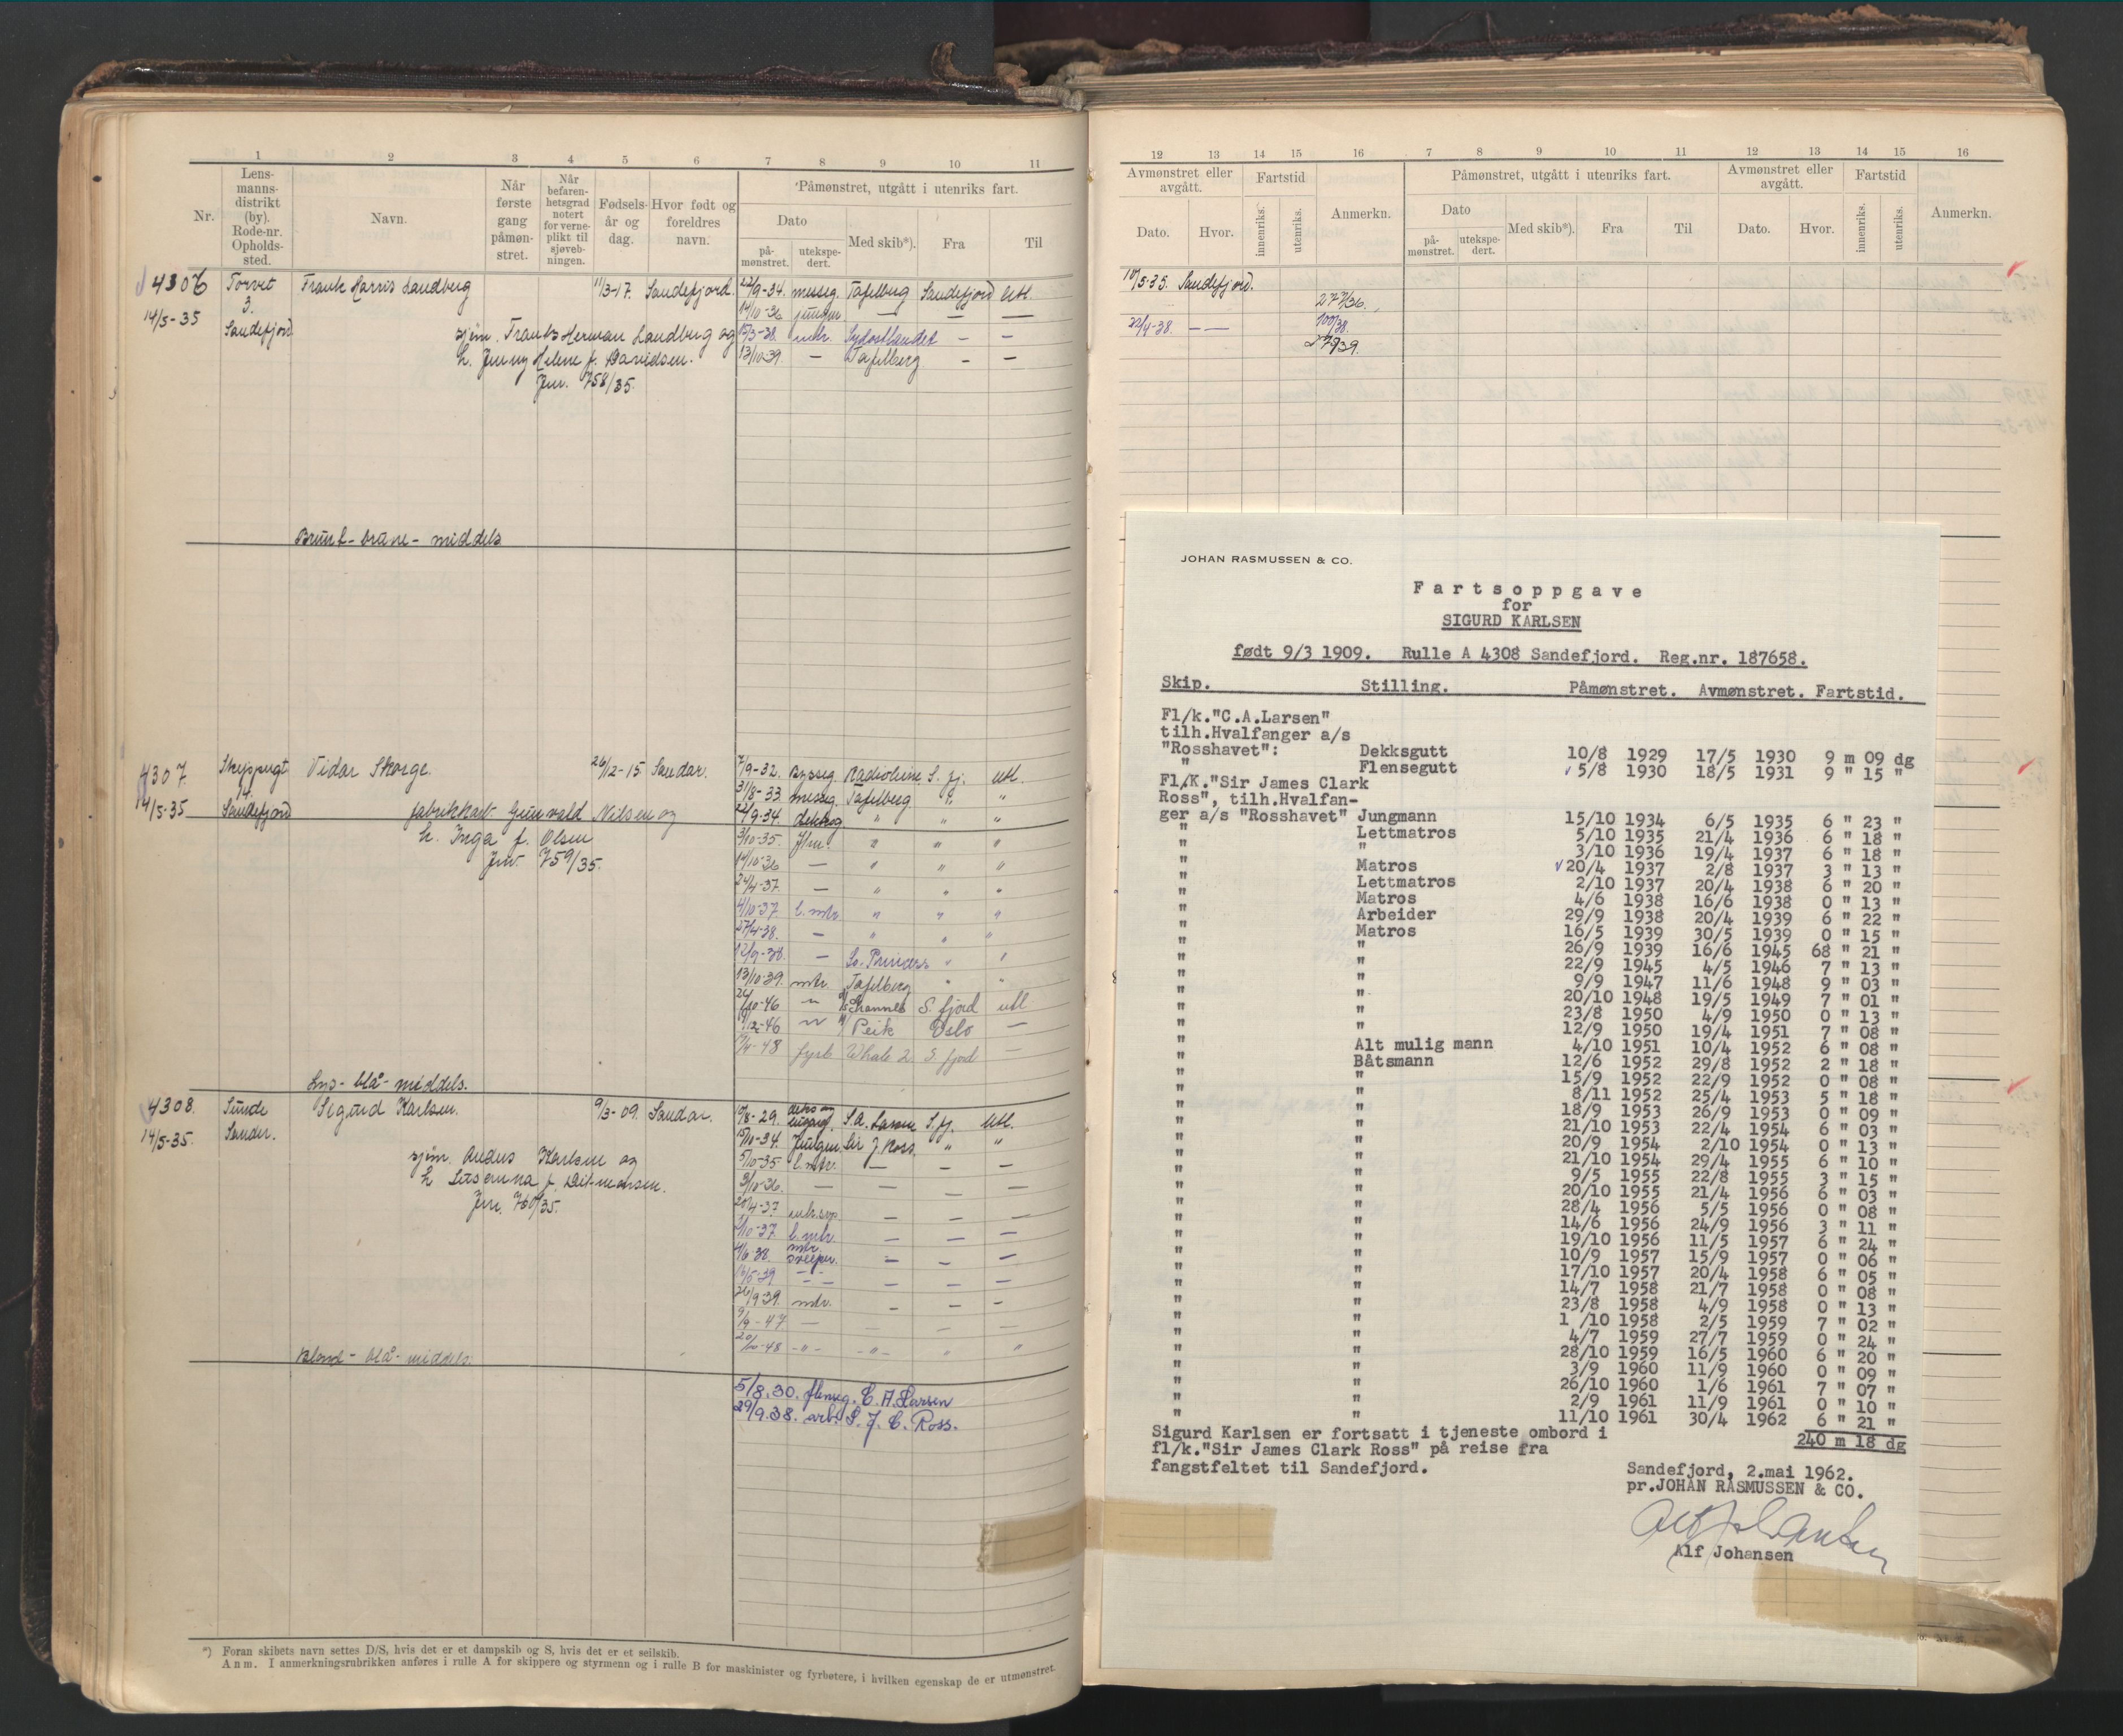 1 2 3 4 5 6 7 8 9 10 11
Nr.
Lens-
manns-
distrikt
(by).
Rode-nr.
Opholds-
sted.
Navn.
Når
første
gang
påmøn-
stret.
Når
befaren-
hetsgrad
notert
for verne-
plikt til
sjøveb-
ningen.
Fødsels-
år og
dag.
Hvor født og
foreldres
navn.
Påmønstret, utgått i utenriks fart.
Dato
på-
mønstret.
utekspe-
dert.
Med skib*).
Fra
Til
4306 Torvet Frank Harris Sandberg 11/3-17. Sandefjord. 22/9-34. messg. Tafelberg Sandefjord Utl.
3. 14/10-36 jungm. — — —
14/5-35 Sandefjord sjøm. Frantz Herman Sandberg og 15/3-38. mtr. Sydostlandet — —
h. Jenny Helene f. Davidsen. 13/10-39. — Tafelberg — —
Jnr. 758/35.
Brunt - brune - middels
4307. Vidar Skorge. 26/12-15. Sandar. 7/9-32. bysseg. Radioleine S. fj. Utl.
31/8-33. messeg. Tafelberg " "
14/5-35 Sandefjord fabrikkarb. Gunvald Nilsen og 22/9-34. " " "
h. Inga f. Olsen 3/10-35. J.m. " " "
Jnr. 759/35. 14/10-36 — " " "
24/4-37. — " " "
4/10-37. l. mtr. " " "
27/4-38. — " " "
12/9-38. — So. Princess " "
13/10-39. mtr. Tafelberg " "
-46 " S. fjord utl
/12-46 " Peik Oslo —
-48 fyrb Whale 2 S. fjord —
Lys - blå - middels.
4308. Sunde Sigurd Karlsen. 9/3-09. Sandar. 10/8-29. C.A. Larsen S. fj. Utl.
14/5-35. Sandar. 15/10-34. Jungm Sir J. Ross. " "
sjøm. Anders Karlsen og 5/10-35 l. mtr. — — —
3/10-36. — — — —
Jnr. 760/35. 20/4-37. — — —
2/10-37. l. mtr. — — —
4/6-38. mtr. sveiper. — — —
16/5-39 — — — — —
26/9 39. mtr. — — —
9/9-47. — — — —
20/10-48 -"- -"- " "
Blond - blå - middels.
5/8.30. flenseg. C. A. Larsen
29/9.38. arb. S. J. C. Ross.
*) Foran skibets navn settes D/S, hvis det er et dampskib og S, hvis det er et seilskib.
Anm. I anmerkningsrubrikken anføres i rulle A for skippere og styrmenn og i rulle B for maskinister og fyrbøtere, i hvilken egenskap de er utmønstret.
12 13 14 15 16 7 8 9 10 11 12 13 14 15 16
Avmønstret eller
avgått.
Dato.
Hvor.
Fartstid
innenriks.
utenriks.
Anmerkn.
Påmønstret, utgått i utenriks fart.
Dato
på-
mønstret.
utekspe-
dert.
Med skib*).
Fra
Til
Avmønstret eller
avgått.
Dato.
Hvor.
Fartstid
innenriks.
utenriks.
Anmerkn.
10/5-35. Sandefjord.
22/4-38. — —
100/38.
JOHAN RASMUSSEN & CO.
Fartsoppgave
for
SIGURD KARLSEN
født 9/3 1909. Rulle A 4308 Sandefjord. Reg.nr. 187658.
Skip. Stilling. Påmønstret. Avmønstret. Fartstid.
Fl/k."C.A.Larsen"
tilh.Hvalfanger a/s
"Rosshavet": Dekksgutt 10/8 1929 17/5 1930 9 m 09 dg
" Flensegutt 5/8 1930 18/5 1931 9 " 15 "
Fl/K."Sir James Clark
Ross", tilh.Hvalfan-
ger a/s "Rosshavet" Jungmann 15/10 1934 6/5 1935 6 " 23 "
" Lettmatros 5/10 1935 21/4 1936 6 " 18 "
" " 3/10 1936 19/4 1937 6 " 18 "
" Matros 20/4 1937 2/8 1937 3 " 13 "
" Lettmatros 2/10 1937 20/4 1938 6 " 20 "
" Matros 4/6 1938 16/6 1938 0 " 13 "
" Arbeider 29/9 1938 20/4 1939 6 " 22 "
" Matros 16/5 1939 30/5 1939 0 " 15 "
" " 26/9 1939 16/6 1945 68 " 21 "
" " 22/9 1945 4/5 1946 7 " 13 "
" " 9/9 1947 11/6 1948 9 " 03 "
" " 20/10 1948 19/5 1949 7 " 01 "
" " 23/8 1950 4/9 1950 0 " 13 "
" " 12/9 1950 19/4 1951 7 " 08 "
" Alt mulig mann 4/10 1951 10/4 1952 6 " 08 "
" Båtsmann 12/6 1952 29/8 1952 2 " 18 "
" " 15/9 1952 22/9 1952 0 " 08 "
" " 8/11 1952 25/4 1953 5 " 18 "
" " 18/9 1953 26/9 1953 0 " 09 "
" " 21/10 1953 22/4 1954 6 " 03 "
" " 20/9 1954 2/10 1954 0 " 13 "
" " 21/10 1954 29/4 1955 6 " 10 "
" " 9/5 1955 22/8 1955 3 " 15 "
" " 20/10 1955 21/4 1956 6 " 03 "
" " 28/4 1956 5/5 1956 0 " 08 "
" " 14/6 1956 24/9 1956 3 " 11 "
" " 19/10 1956 11/5 1957 6 " 24 "
" " 10/9 1957 15/9 1957 0 " 06 "
" " 17/10 1957 20/4 1958 6 " 05 "
" " 14/7 1958 21/7 1958 0 " 08 "
" " 23/8 1958 4/9 1958 0 " 13 "
" " 1 /10 1958 2/5 1959 7 " 02 "
" " 4/7 1959 27/7 1959 0 " 24 "
" " 28/10 1959 16/5 1960 6 " 20 "
" " 3/9 1960 11/9 1960 0 " 09 "
" " 26/10 1960 1/6 1961 7 " 07 "
" " 2/9 1961 11/9 1961 0 " 10 "
" " 11/10 1961 30/4 1962 6 " 21 "
Sigurd Karlsen er fortsatt i tjeneste ombord i 240 m 18 dg
fl/k."Sir James Clark Ross" på reise fra
fangstfeltet til Sandefjord.
Sandefjord, 2.mai 1962.
pr.JOHAN RASMUSSEN & CO.
Alf Johansen